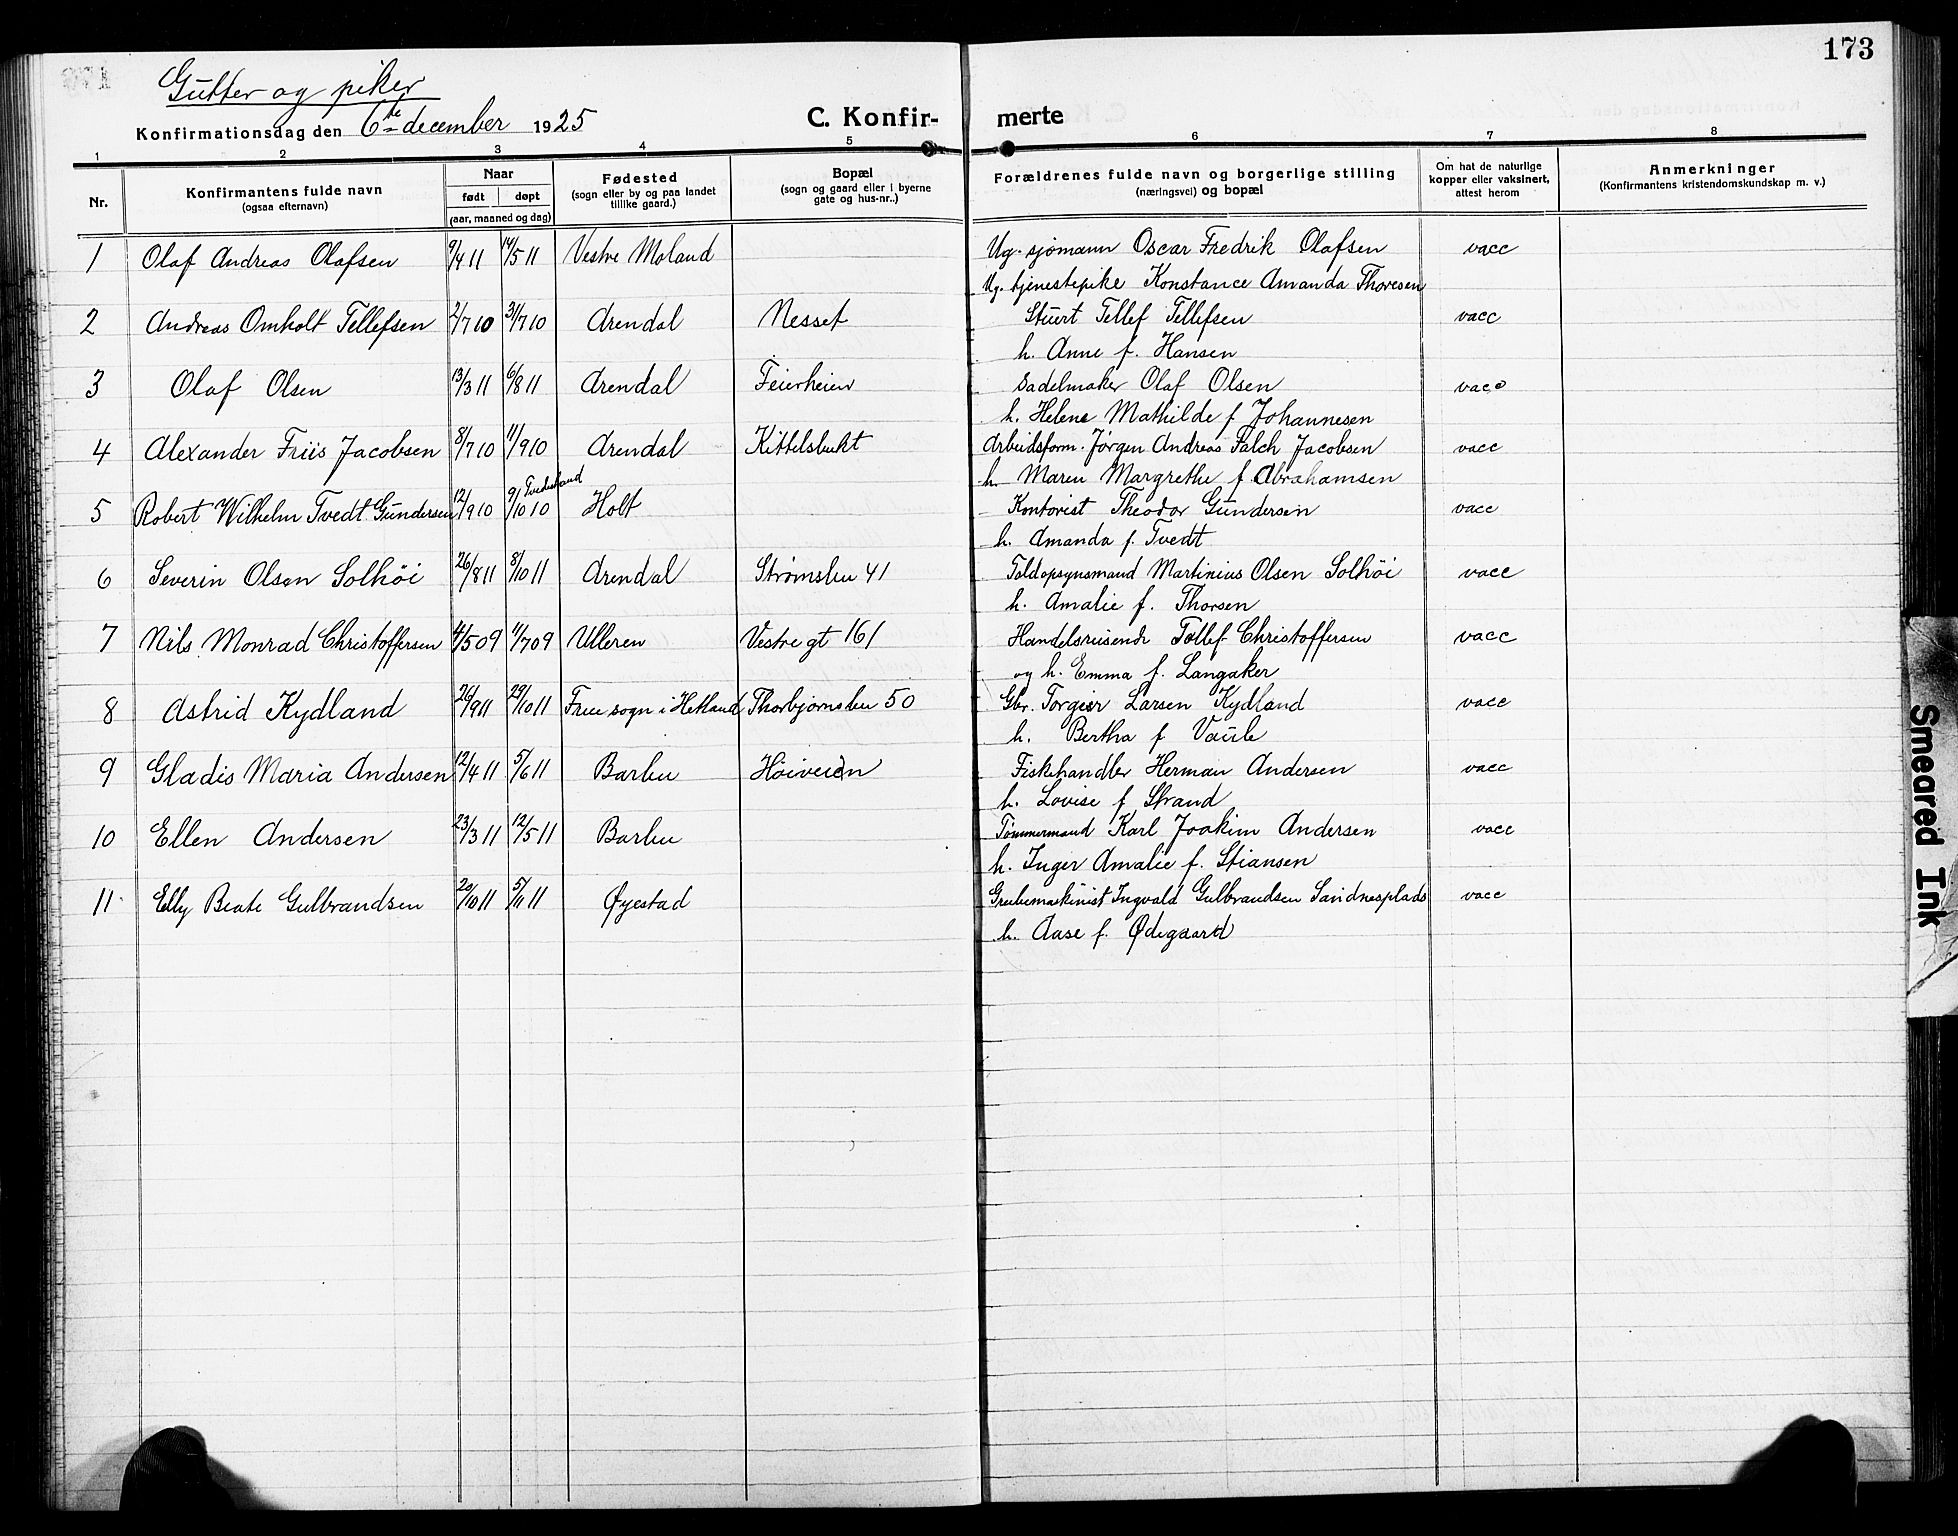 173
Gutter og piker
Konfirmationsdag den 6te december 1925
C. Konfir- merte
1 2 3 4 5 6 7 8
Nr.
Konfirmantens fulde navn
(ogsaa efternavn)
Naar
født døpt
(aar, maaned og dag)
Fødested
(sogn eller by og paa landet
tillike gaard.)
Bopæl
(sogn og gaard eller i byerne
gate og hus-nr..)
Forældrenes fulde navn og borgerlige stilling
(næringsvei) og bopæl
Om hat de naturlige
kopper eller vaksinert,
attest herom
Anmerkninger
(Konfirmantens kristendomskundskap m. v.)
1 Olaf Andreas Olafsen 9/4 11 14/5 11 Vestre Moland Ug. sjømann Oscar Fredrik Olafsen vacc
Ug. tjenestepike Konstance Amanda Thoresen
2 Andreas Omholt Tellefsen 2/7 10 31/7 10 Arendal Nesset Stuert Tellef Tellefsen vacc
h. Anne f. Hansen
3 Olaf Olsen 13/3 11 6/8 11 Arendal Feierheien Sadelmaker Olaf Olsen vacc
h. Helene Mathilde f Johannesen
4 Alexander Friis Jacobsen 8/7 10 11/9 10 Arendal Kittelsbukt Arbeidsform. Jørgen Andreas Falch Jacobsen vacc
h. Maren Margrethe f. Abrahamsen
5 Robert Wilhelm Tvedt Gundersen 12/9 10 9/10 10 Tvedestrand Holt Kontorist Theodor Gundersen vacc
h. Amanda f. Tvedt
6 Severin Olsen Solhöi 26/8 11 8/10 11 Arendal Strømsbu 41 Toldopsynsmand Martinius Olsen Solhöi vacc
h. Amalie f. Thorsen
7 Nils Monrad Christoffersen 4/5 09 11/7 09 Ulleren Vestre gt 161 Handelsreisende Tollef Christoffersen vacc
og h. Emma f. Langaker
8 Astrid Kydland 26/9 11 29/10 11 Frue sogn i Hetland Thorbjørnsbu 50 Gbr. Torgier Larsen Kydland vacc
h. Bertha f Vaule
9 Gladis Maria Andersen 12/4 11 5/6 11 Barbu Höiveien Fiskehandler Herman Andersen vacc
h. Lovise f Strand
10 Ellen Andersen 23/3 11 12/5 11 Barbu Tømmermand Karl Joakim Andersen vacc
h. Inger Amalie f. Stiansen
11 Elly Beate Gulbrandsen 20/10 11 5/11 11 Øyestad Grubemaskinist Ingvald Gulbrandsen Sandnesplads vacc
h. Aase f. Ødegaard
Smeared Ink